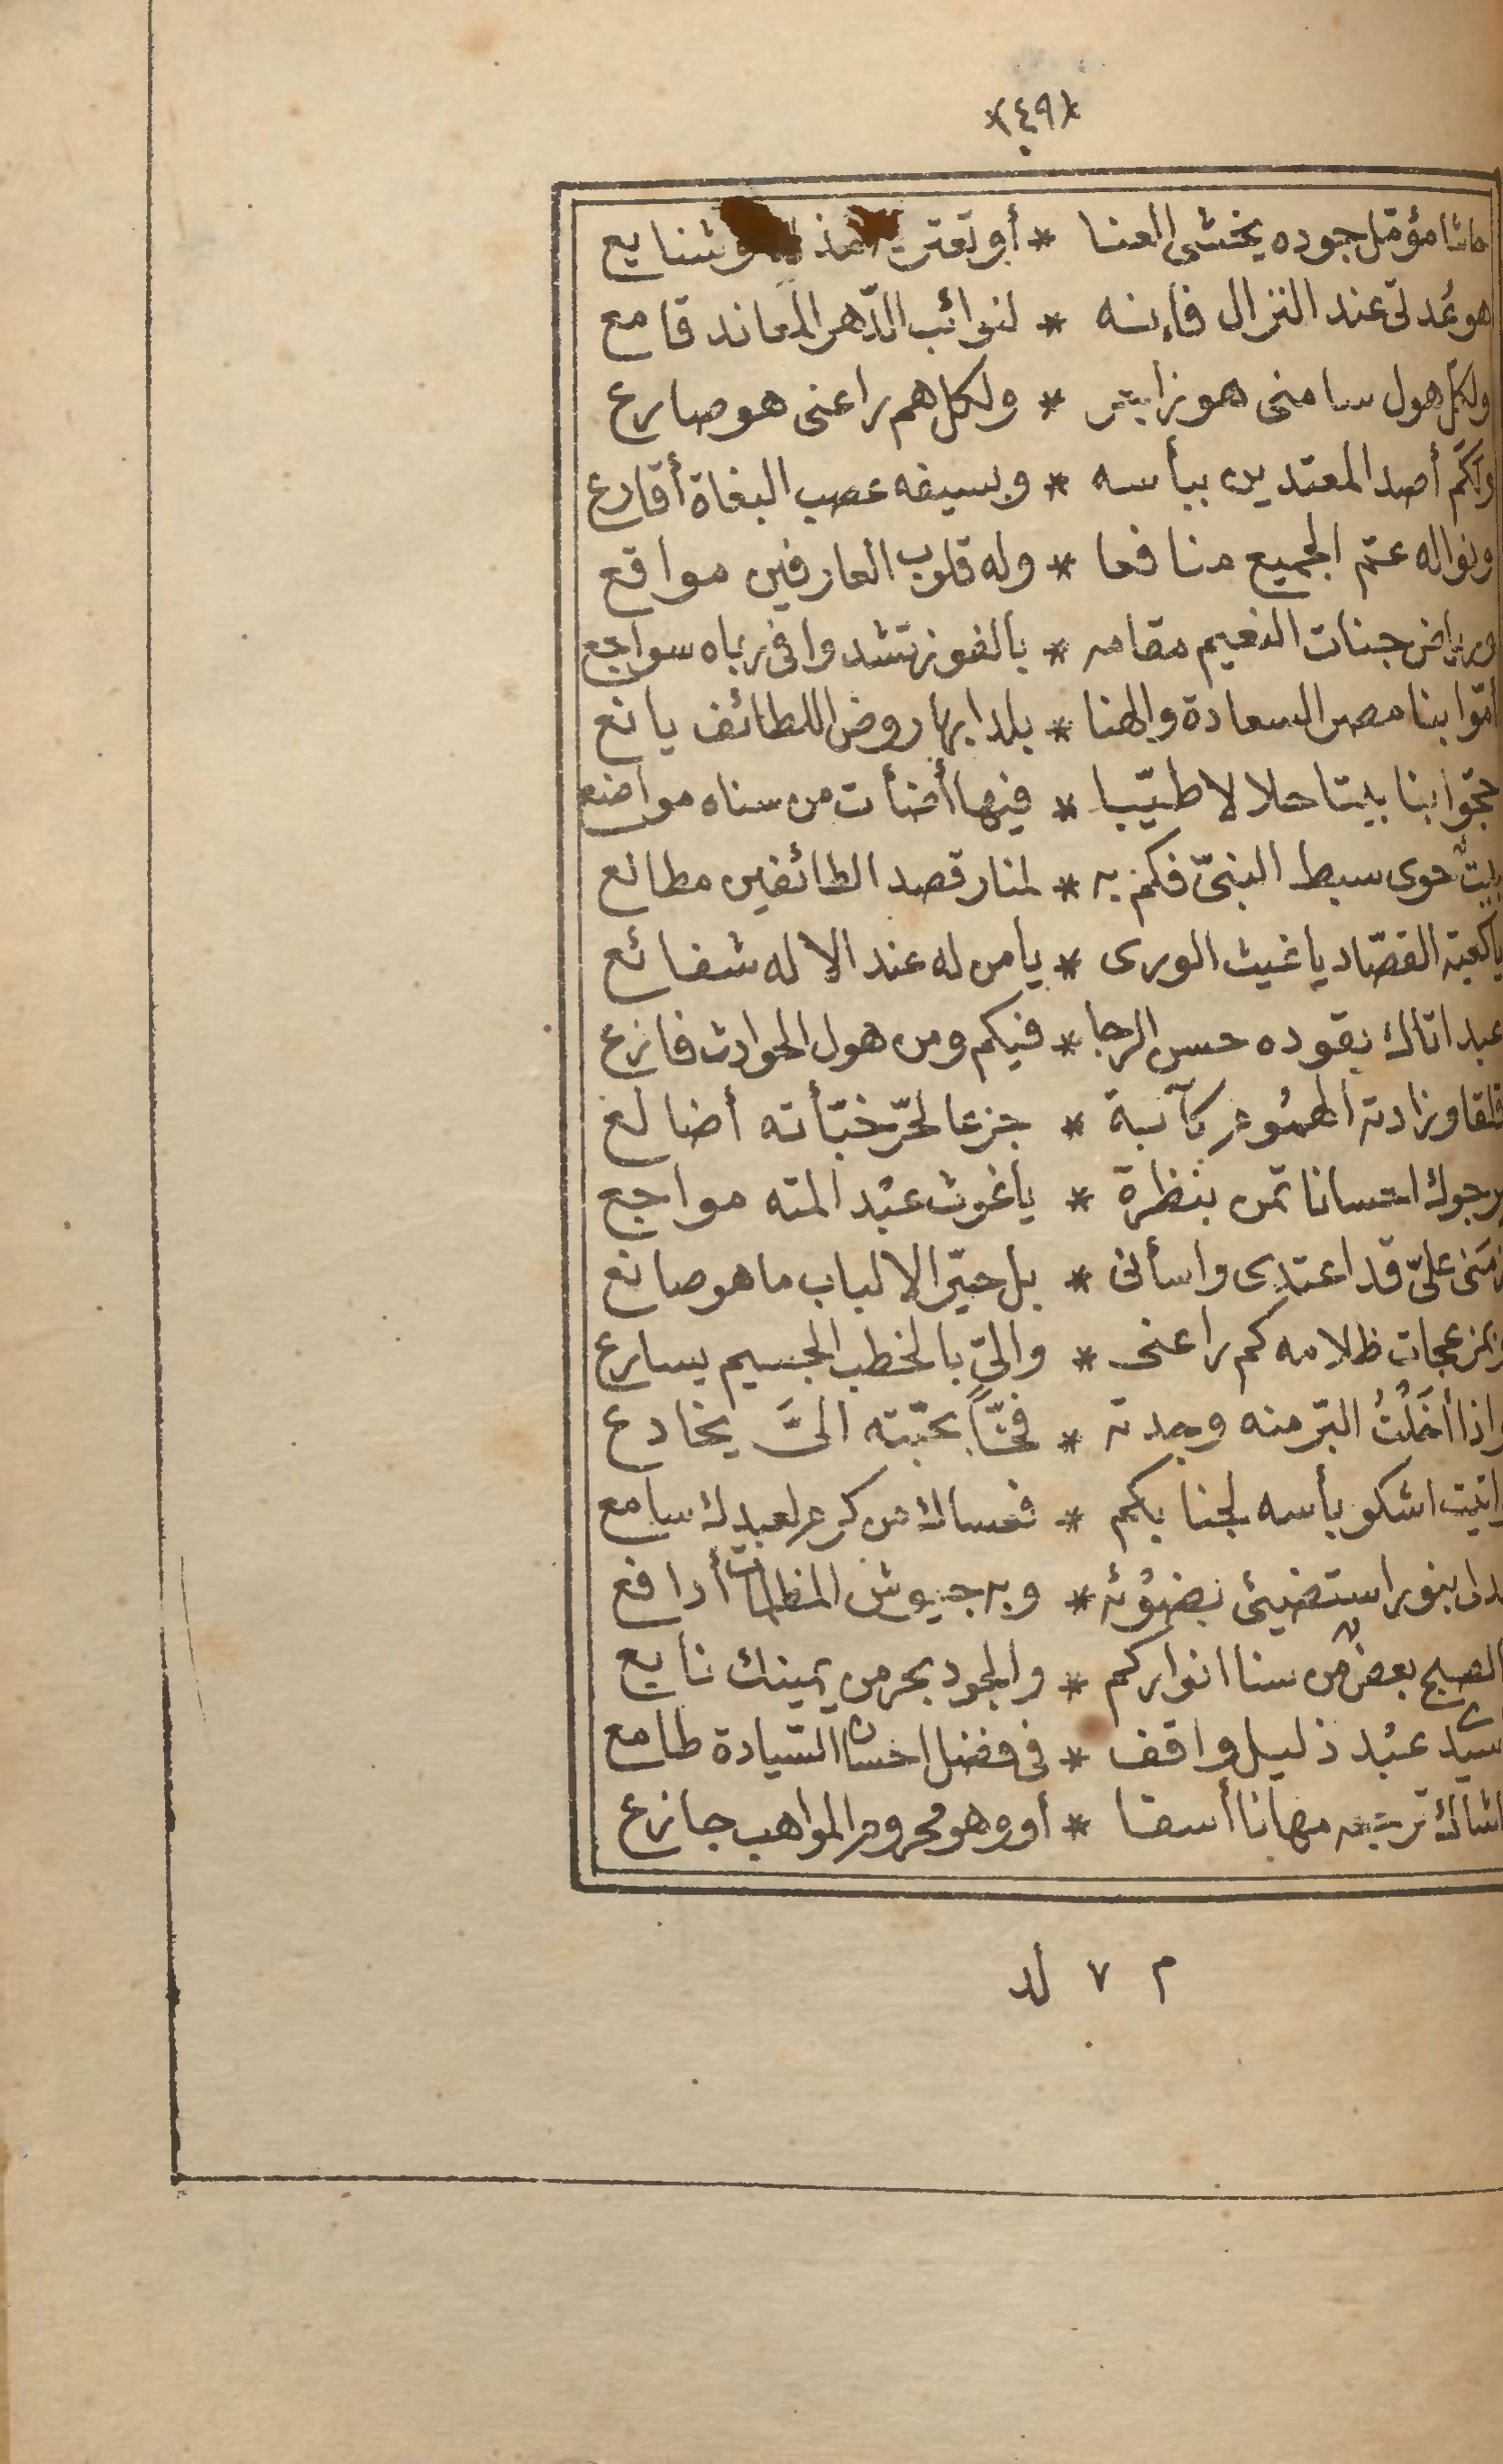 *٤٩*
حاشا مؤمّل جوده يخشى العنا * أو تعتريه وشنايع
هو عُمدتى عند النزال فإنه * لنوائب الدّهر المعاند قامع
ولكل هول سامنى هو زاجر * ولكل هم راعنى هو صارع
ولكَم أصد المعتدين ببأسه * وبسيفه عصب البغاة أقارع
ونواله عمّ الجميع منافعا * وله قلوب العارفين مواقع
ورياض جنات النعيم مقامه * بالفوز تشدوا فى رباه سواجع
امّوا بنا مصر السعادة والهنا * بلدا بها روض اللطائف يانع
حجّوا بنا بيتا حلالا طيّبا * فيها أضأت من سناه مواضع
بيتٌ حوى سبط النبىّ فكم به * لمنار قصد الطائفين مطالع
ياكعبة القصّاد ياغيث الورى * يامن له عند الاله شفائع
عبد اتاك يقوده حسن الرجا * فيكم ومن هول الحوادث فازع
قلقا وزادته الهمُوم كآبة * جزعا لحرّ خبّأته أضالع
يرجوك احسانا تمن بنظرة * ياغوث عبْد المته مواجع
زمَنى علىّ قد اعتدى واسأنى * بل حيّر الالباب ماهو صانع
وبمزعجات ظلامه كم راعنى * والىّ بالخطب الجسيم يسارع
واذا أخَلْتُ البرّ منه وجدته * فخّاً بحبّته الىَّ يخادع
واتيت اشكو بأسه لجنابكم * فعساك من كرم لعبدك سامع
بدلى بنور استضيئ بضوُئه * وبه جيوش المظلمات أدافع
الصبح بعضٌ من سنا انواركم * والجود بحر من يمينك نابع
سيدى عبْد ذليل واقف * فى فضل احسان السّيادة طامع
حاشاك ترجعه مهانا أسفا * أو وهو محروم المواهب جازع
م ٧ لد